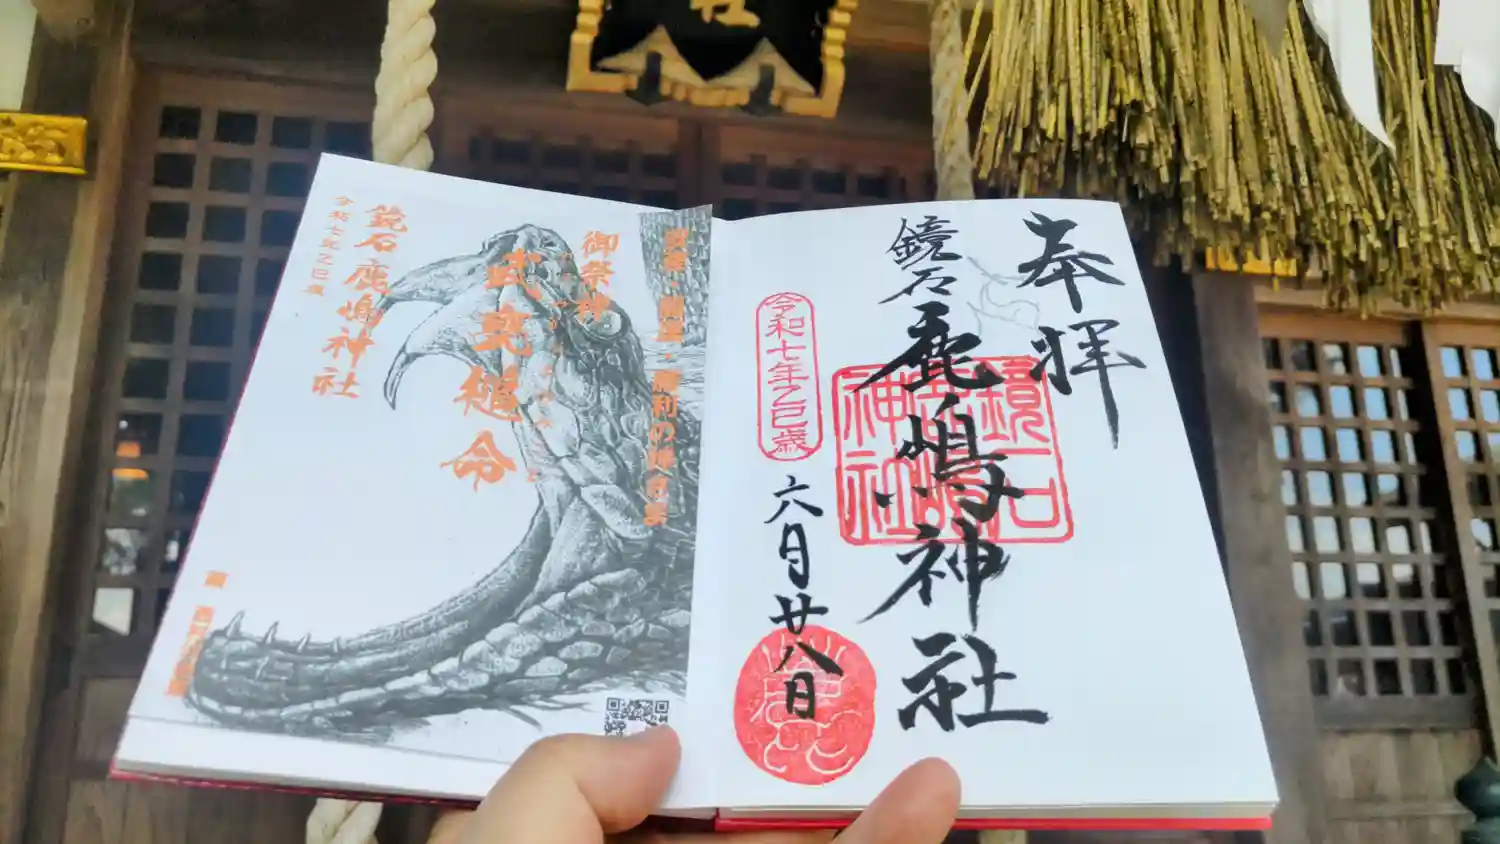 社
奉拝
鏡石鹿嶋神社
鏡石
鹿嶋
神社
令和七年乙巳歳
六月廿八日
御祭神
武甕槌命
鏡石鹿嶋神社
令和七年乙巳歳